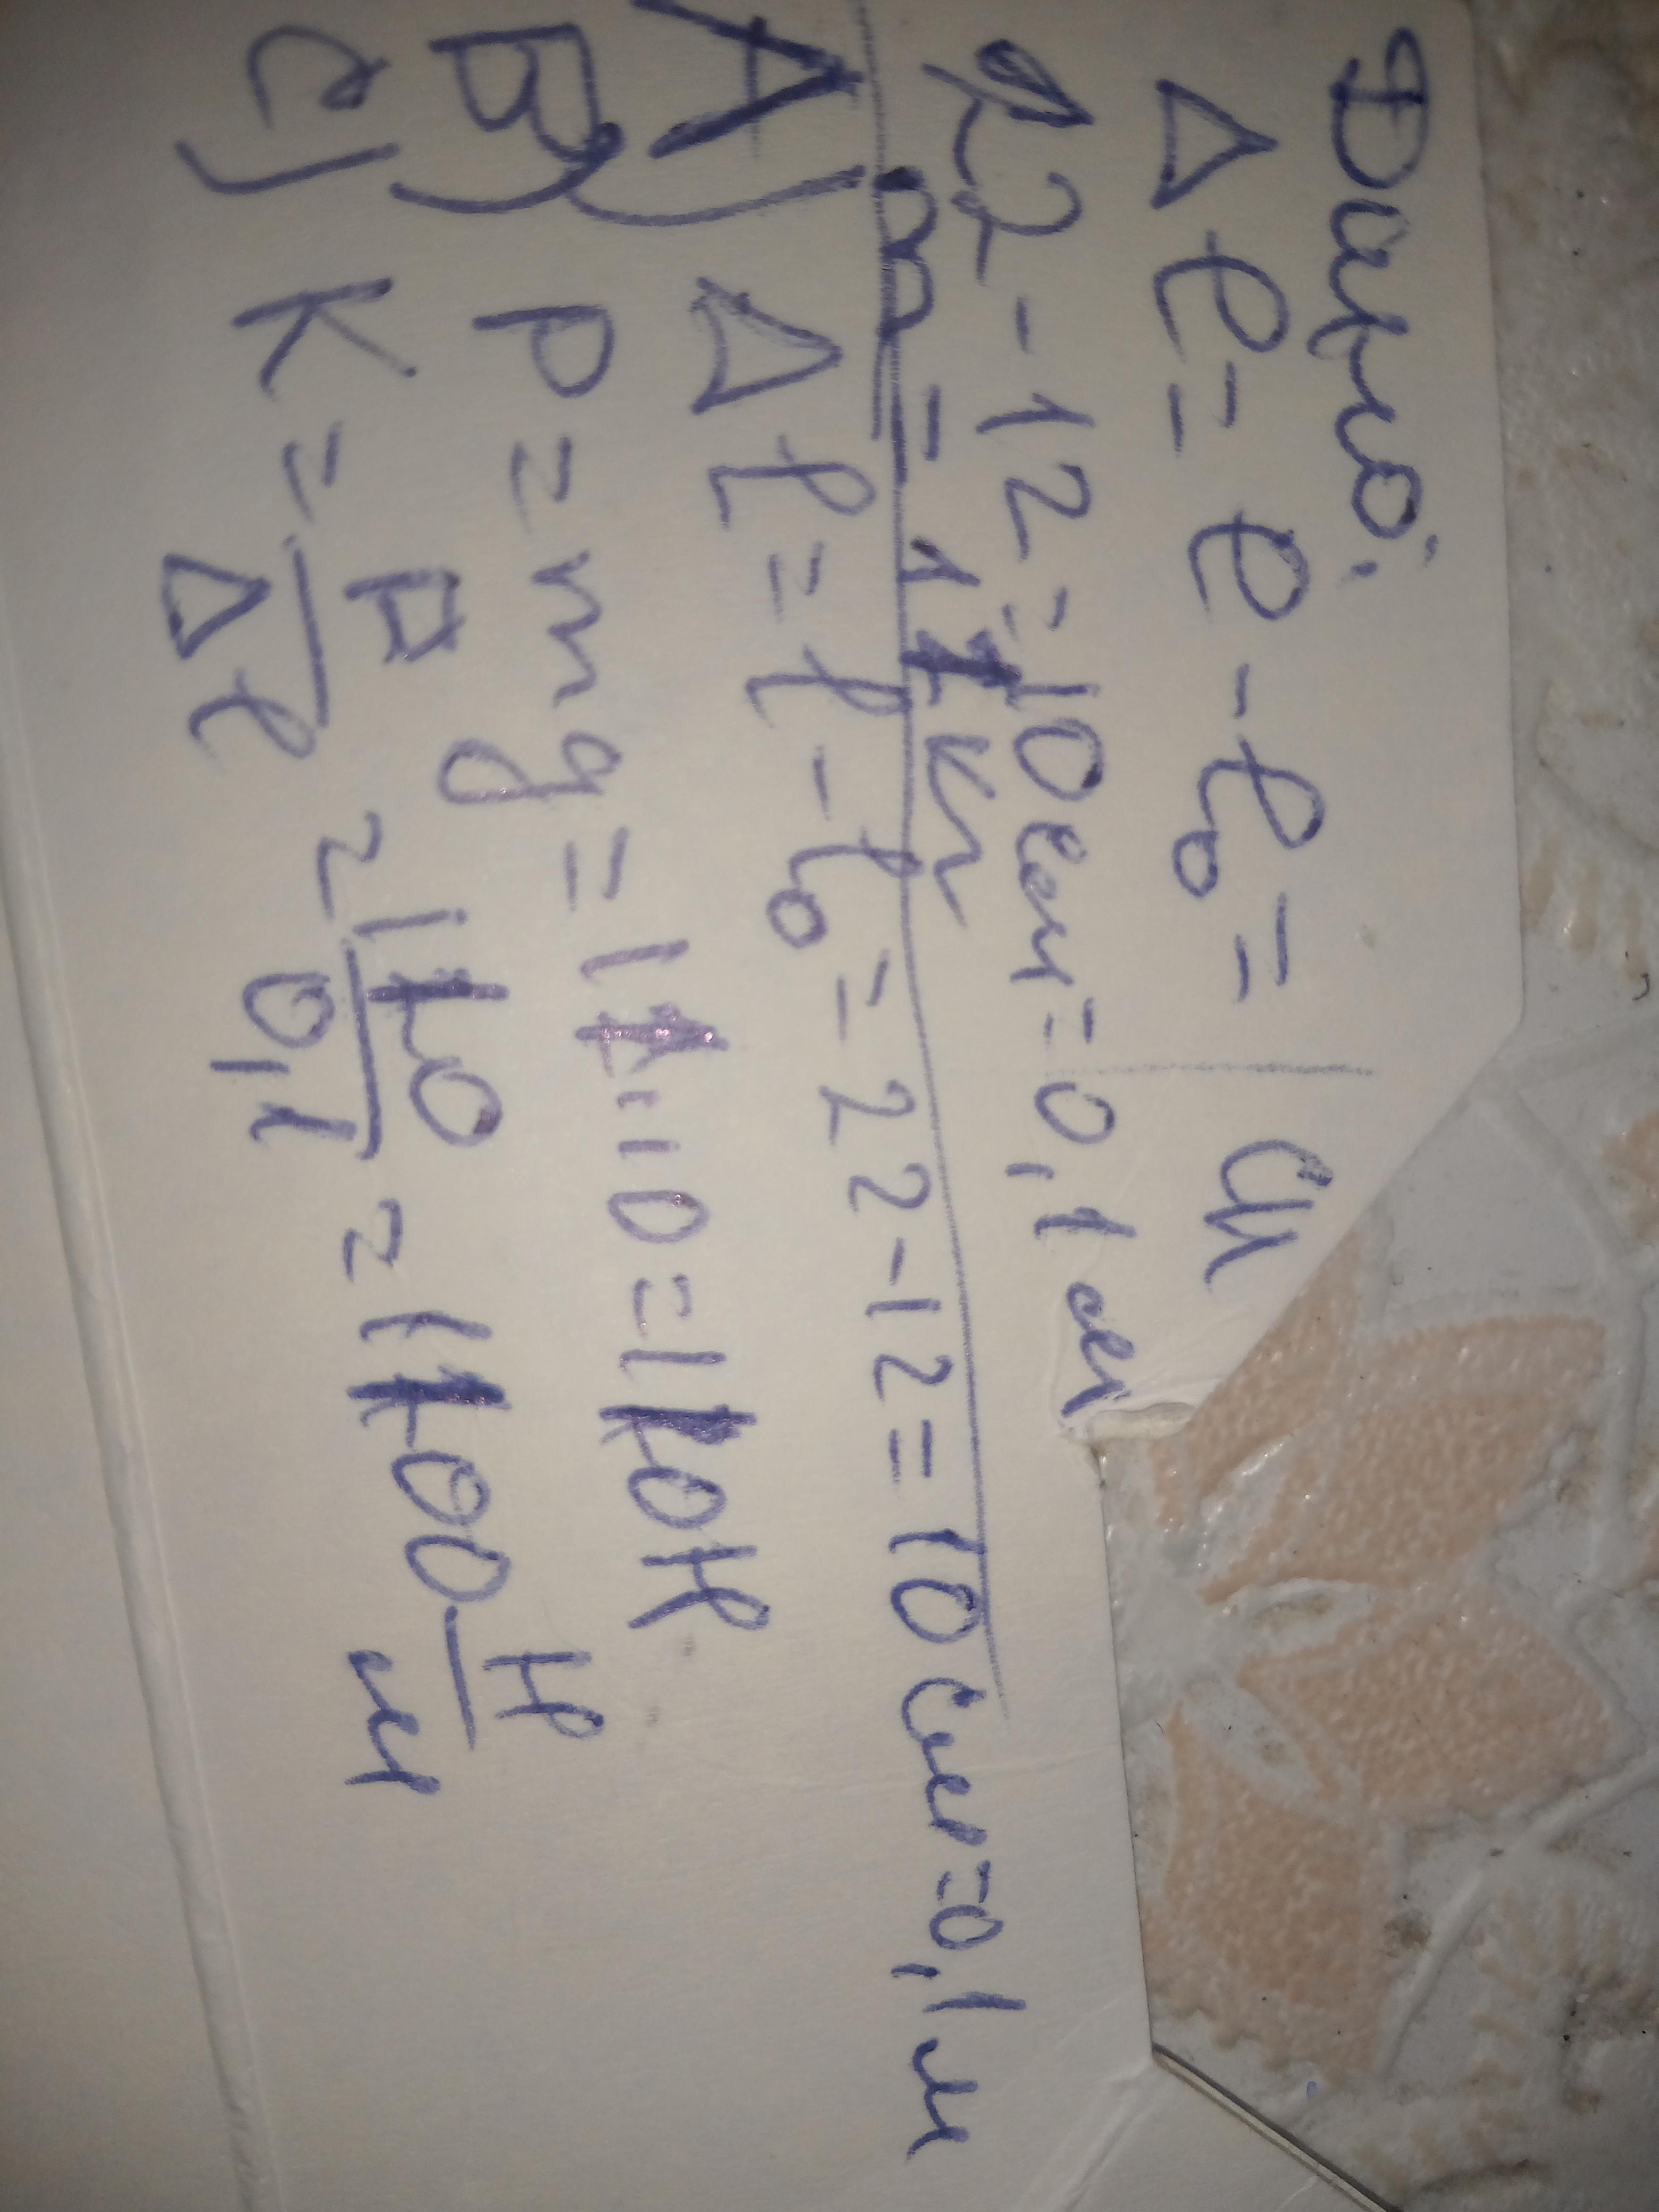 Дано:
Δl = l - l₀ = | СИ
22 - 12 = 10 см = 0,1 м
m = 11 кг
A) Δl = l - l₀ = 22 - 12 = 10 см = 0,1 м
B) P = mg = 11 · 10 = 110 Н
C) K = P/Δl = 110/0,1 = 1100 Н/м